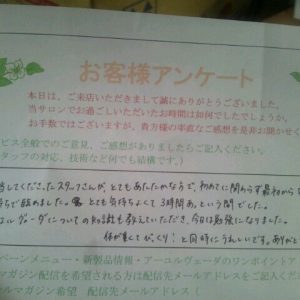 お客様アンケート
本日は、ご来店いただきまして誠にありがとうございました。
当サロンでお過ごしいただいたお時間は如何でしたでしょうか。
お手数ではございますが、貴方様の率直なご感想を是非お聞かせく
ビス全般でのご意見、ご感想がありましたらご記入ください。
タッフの対応、技術など何でも結構です。）
当してくださったスタッフさんが、とてもあたたかな方で、初めてに関わらず最初から
持ちで臨めました。とても気持ちよくて3時間あっという間でした。
ユルヴェーダについての知識も教えていただき、今日は勉強になりました。
体が軽くてびっくり！と同時にうれしいです。ありがと
ペーンメニュー・新製品情報・アーユルヴェーダのワンポイントア
マガジン配信を希望される方は配信先メールアドレスをご記入くだ
ールマガジン希望　配信先メールアドレス（